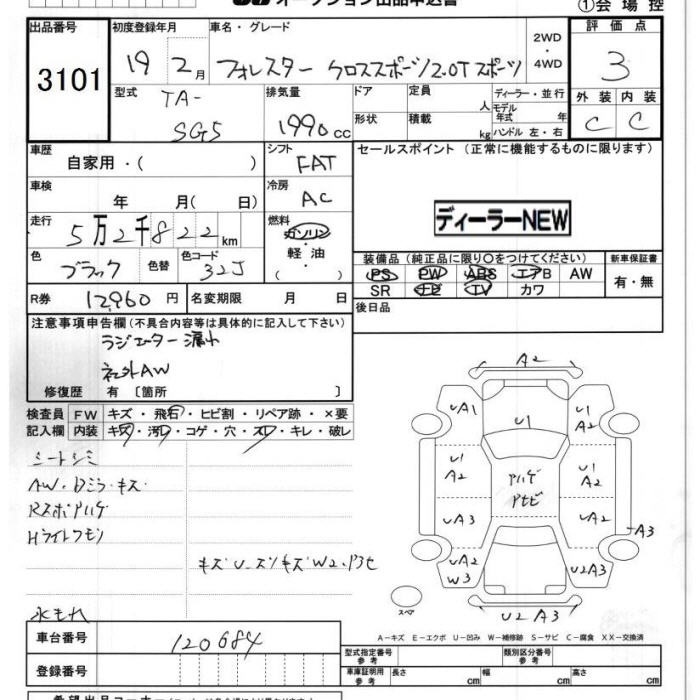 オークション出品申込書
①会場控
出品番号
3101
初度登録年月
19 2月
車名・グレード
フォレスター クロススポーツ2.0Tスポーツ
2WD
・
4WD
評価点
3
型式
TA-
SG5
排気量
1990cc
ドア
形状
定員 人
積載 kg
ディーラー・並行
モデル
年式 年
ハンドル 左・右
外装 内装
C C
車歴
自家用・( )
シフト
FAT
セールスポイント (正常に機能するものに限ります)
車検
年 月( 日)
冷房
AC
ディーラーNEW
走行
5万2千822km
燃料
ガソリン
・
軽油
( )
色
ブラック
色替
色コード
32J
装備品(純正品に限り○をつけてください)
新車保証書
PS PW ABS エアB AW
SR ナビ TV カワ
有・無
R券 12960円
名変期限 月 日
後日品
注意事項申告欄(不具合内容等は具体的に記入して下さい)
ラジエーター漏れ
社外AW
修復歴 有〔箇所 〕
検査員 FW キズ・飛石・ヒビ割・リペア跡・×要
記入欄 内装 キズ・汚レ・コゲ・穴・スレ・キレ・破レ
シートシミ
AW・Dミラーキズ
RスポAハゲ
Hライトクモリ
水もれ
A2
UA1
U1
U1
A2
U1
A2
U1
A2
Aハゲ
Aサビ
UA2
UA2
A3
UA2
W3
U2A3
U2A3
スペア
A-キズ E-エクボ U-凹み W-補修跡 S-サビ C-腐食 XX-交換済
車台番号
120684
登録番号
型式指定番号
参考
類別区分番号
参考
車庫証明用
参考
長さ cm
幅 cm
高さ cm